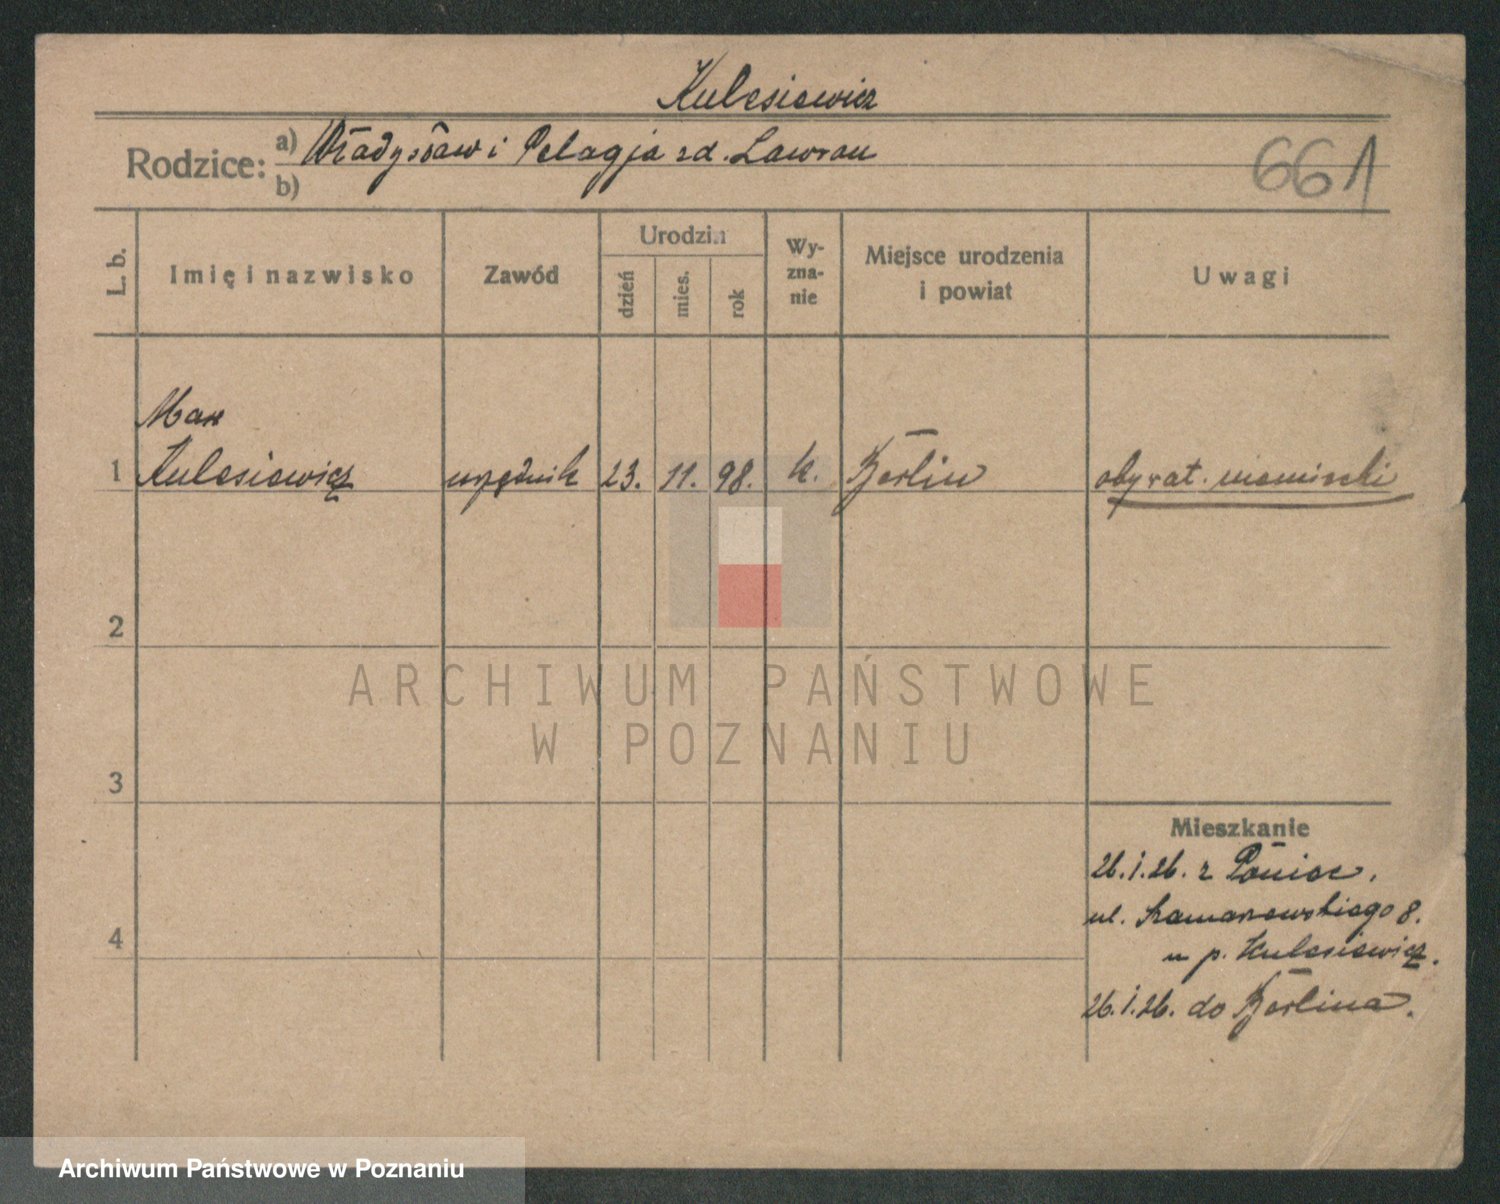 Kulesiewicz
Rodzice: a) Władysław i Pelagja zd. Lawrau
b)
661
L. b.
Imię i nazwisko
Zawód
Urodzin
dzień
mies.
rok
Wy-
zna-
nie
Miejsce urodzenia
i powiat
Uwagi
Max
1 Kulesiewicz urzędnik 23. 11. 98. k. Berlin obywat. niemiecki
2
3
4
Mieszkanie
26.1.26. z Poniec.
ul. 8.
u p. Kulesiewicz.
26.1.26. do Berlina.
ARCHIWUM PAŃSTWOWE
W POZNANIU
Archiwum Państwowe w Poznaniu